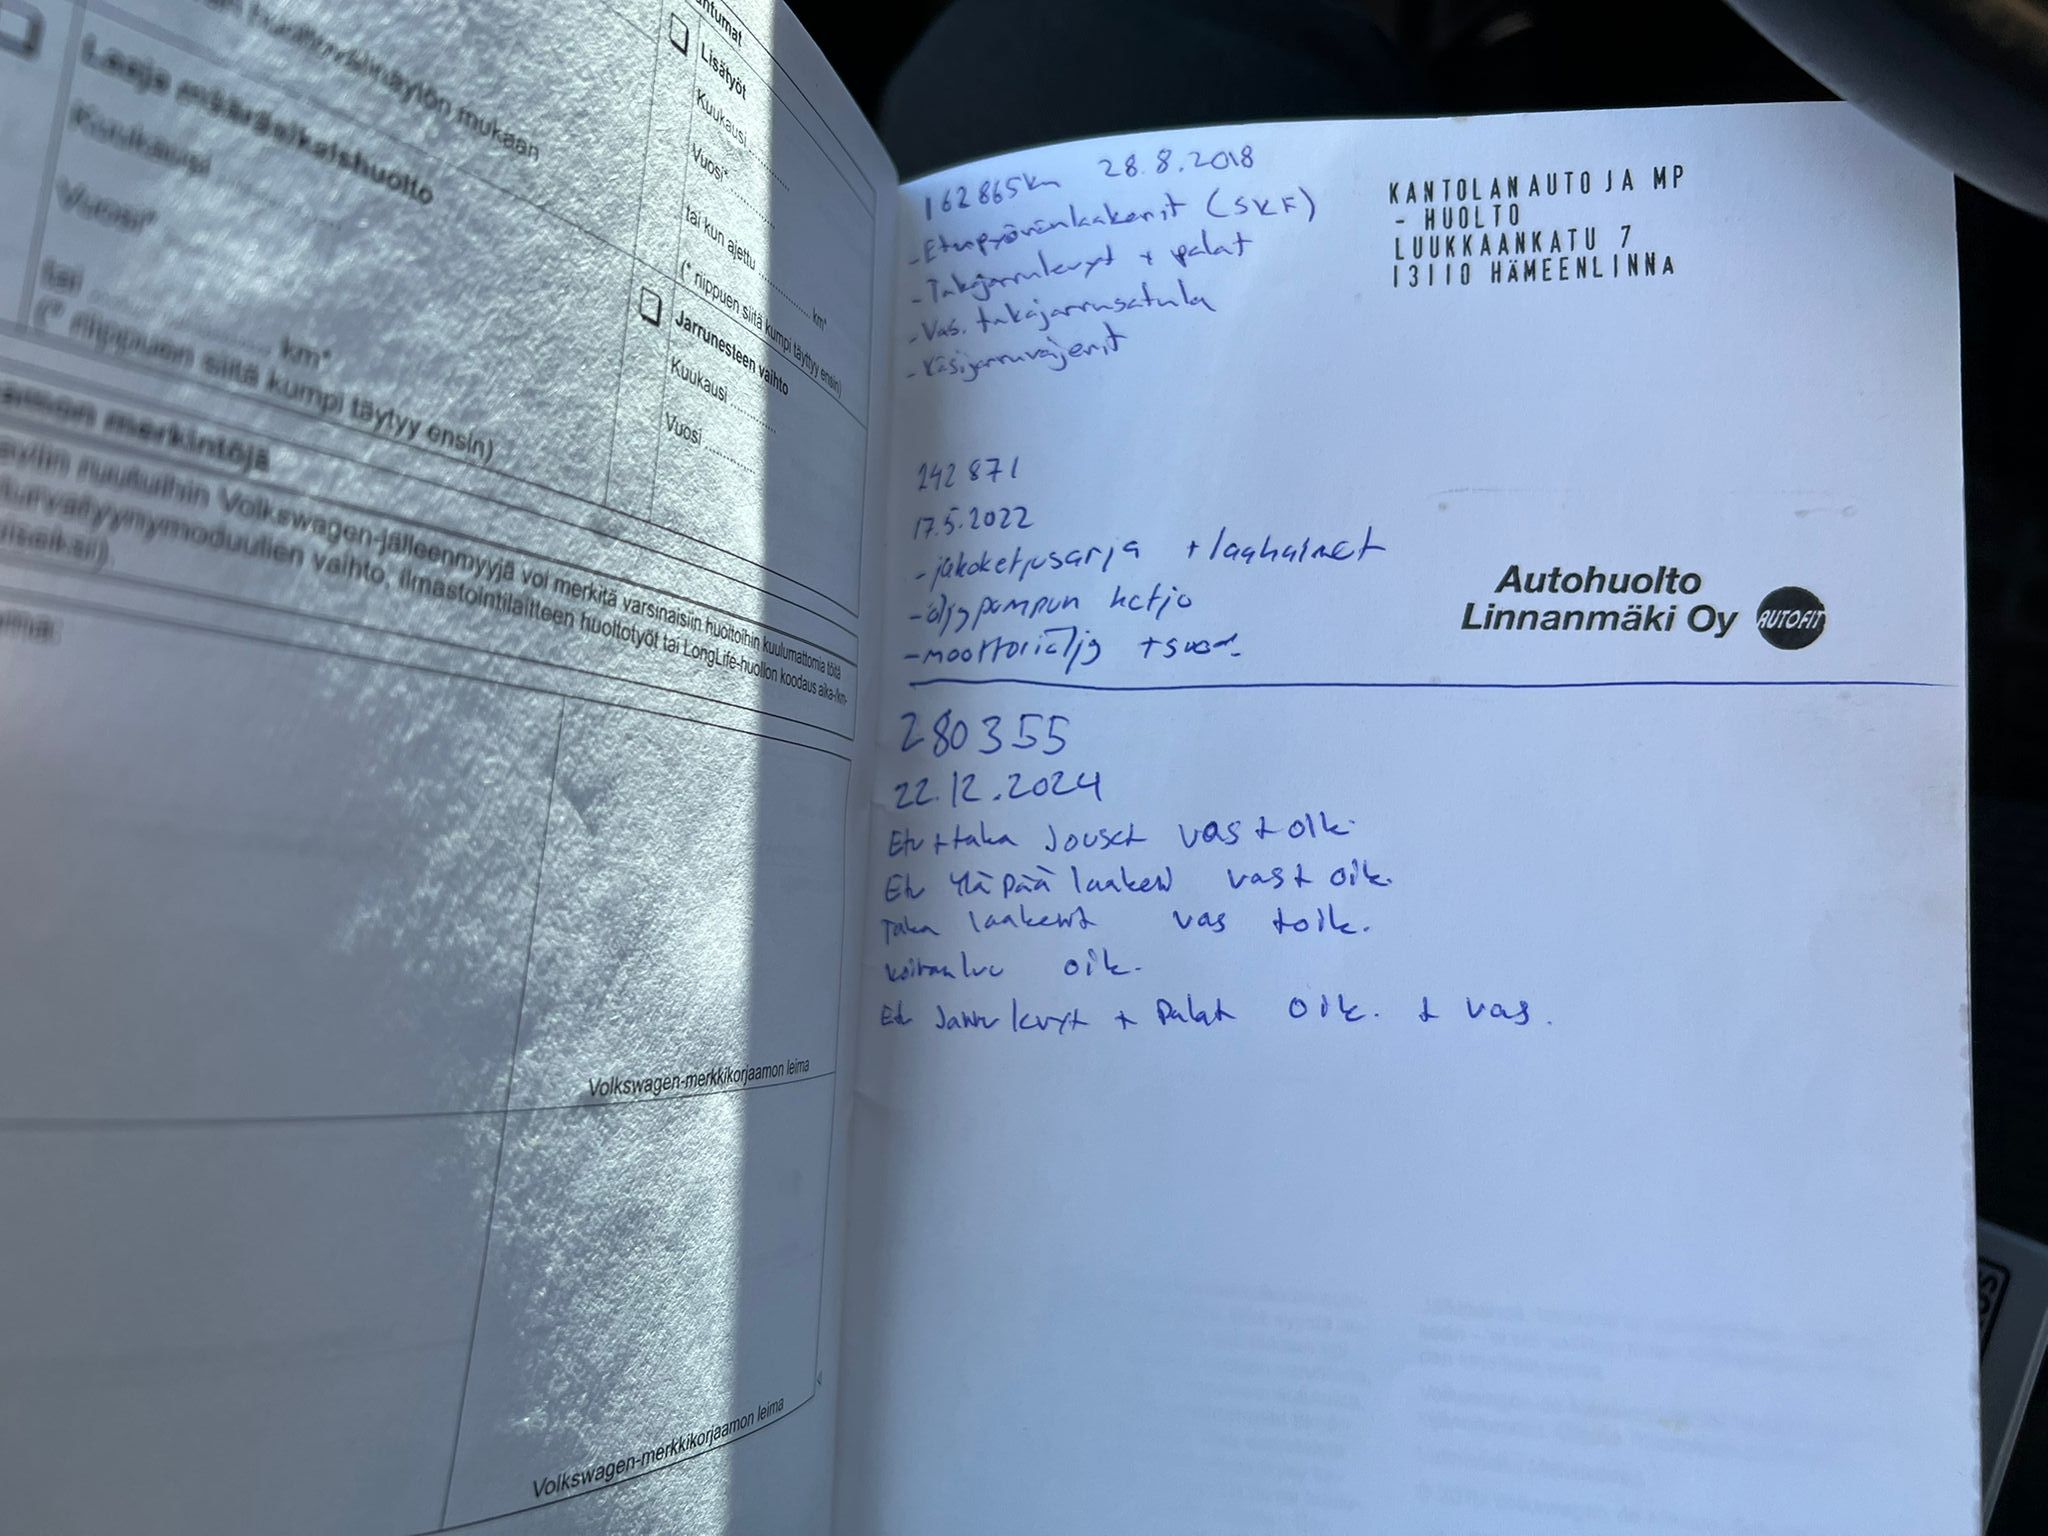 huoltovälinäytön mukaan
Laaja määräaikaishuolto
Kuukausi
Vuosi*
tai km*
(* riippuen siitä kumpi täytyy ensin)
merkintöjä
ruutuihin Volkswagen-jälleenmyyjä voi merkitä varsinaisiin huoltoihin kuulumattomia töitä
vaihto, ilmastointilaitteen huoltotyöt tai LongLife-huollon koodaus aika-/km-
Lisätyöt
Kuukausi
Vuosi*
tai kun ajettu km*
(* riippuen siitä kumpi täyttyy ensin)
Jarrunesteen vaihto
Kuukausi
Vuosi
Volkswagen-merkkikorjaamon leima
Volkswagen-merkkikorjaamon leima
162865km 28.8.2018
- Etupyöränlaakerit (SKF)
- Takajarrulevyt + palat
- Vas. takajarrusatula
- Käsijarruvaijerit
KANTOLAN AUTO JA MP
- HUOLTO
LUUKKAANKATU 7
13110 HÄMEENLINNA
242 871
17.5.2022
- jakoketjusarja + laahaimet
- öljypumpun ketju
- moottoriöljy + suod.
Autohuolto
Linnanmäki Oy AUTOFIT
280355
22.12.2024
Etu + taka Jouset vas + oik.
Etu Yläpää laakeri vas + oik.
Taka laakerit vas + oik.
koiranluu oik.
Etu Jarru levyt + Palat oik. + vas.